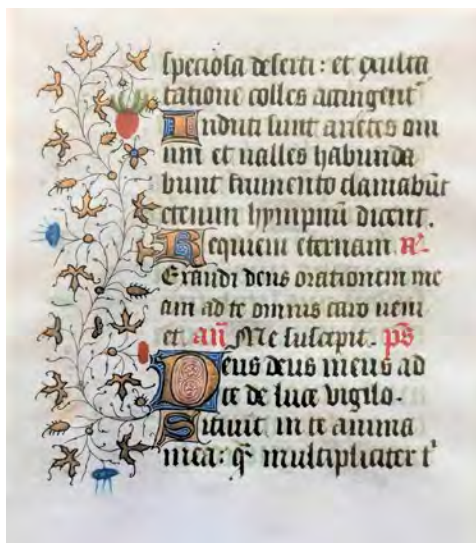 speciosa deserti: et exulta
tatione colles accingent̄
Induti sunt arietes oui
um et ualles habunda
bunt frumento clamabūt
etenim hympnū dicent.
Requiem eternam. A.
Exaudi deus orationem me
am ad te omnis caro ueni
et. añ Me suscepit. pš
Deus deus meus ad
te de luce vigilo.
Sitiuit in te anima
mea: q̄ multipliciter t'